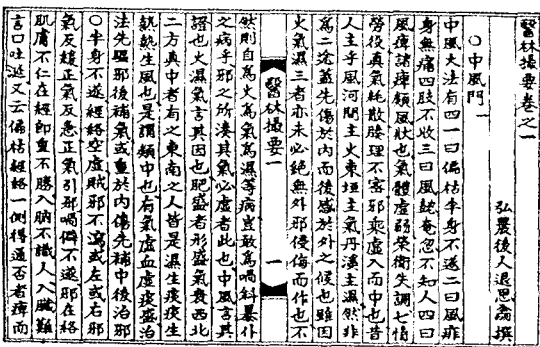 醫林撮要卷之一
弘農後人退思齋撰
○中風門一
中風大法有四一曰偏枯半身不遂二曰風痱
身無痛四肢不收三曰風懿奄忽不知人四曰
風痺諸痺類風狀也氣體虛弱榮衛失調七情
勞役真氣耗散腠理不密邪乘虛入而中也昔
人主乎風河間主火東垣主氣丹溪主濕然非
爲二途蓋先傷於內而後感於外之候也雖因
火氣濕三者亦未必絶無外邪侵侮而作也不
醫林撮要一
一
然則自爲火爲氣爲濕等病豈敢爲喎斜暴仆
之病乎邪之所湊其氣必虛者此也中風言其
證也火濕氣言其因也肥盛者形盛氣衰西北
二方真中者有之東南之人皆是濕生痰痰生
熱熱生風也是謂類中也有氣虛血虛痰盛治
法先驅邪後補氣或重於內傷先補中後治邪
○半身不遂經絡空虛賊邪不瀉或左或右邪
氣反緩正氣反急正氣引邪喎僻不遂邪在絡
肌膚不仁在經即重不勝入腑不識人入臟難
言口吐涎又云偏枯經絡一側得通否者痺而